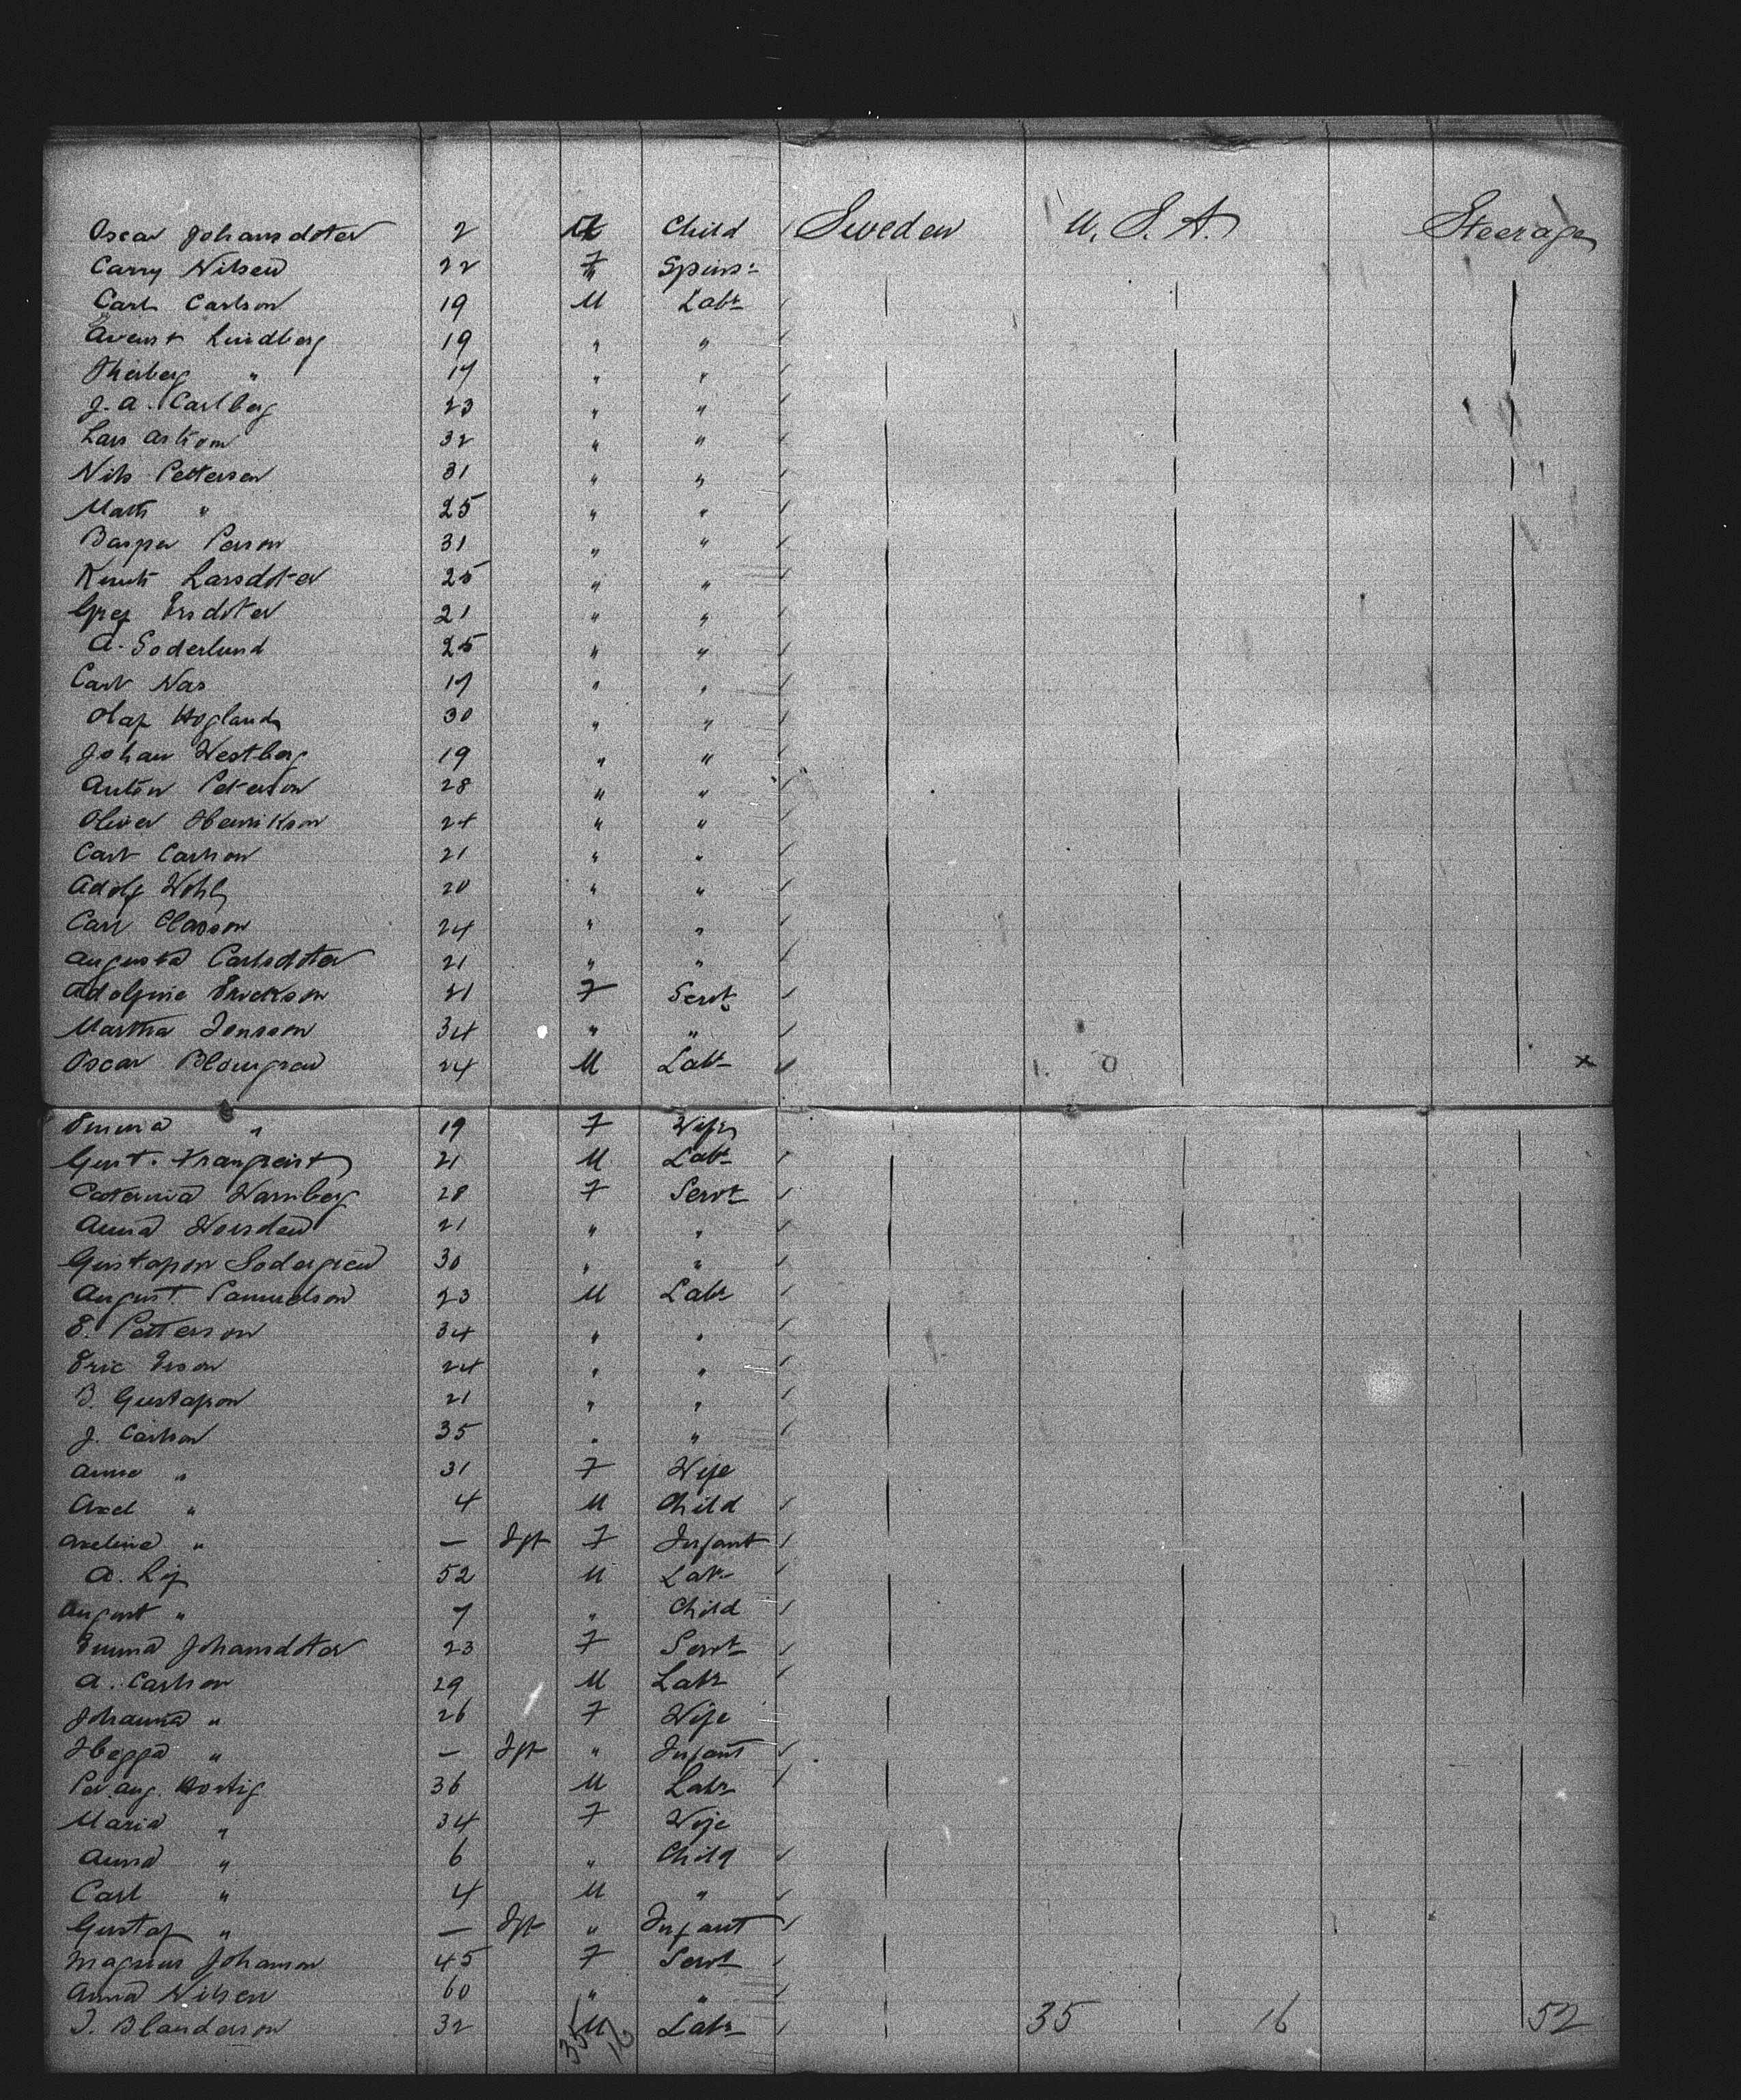 Oscar Johansdoter 2 M Child Sweden U. S. A. Steerage
Carry Nilsen 22 F Spins:
Carl Carlson 19 M Labr
August Lindberg 19 " "
" 17 " "
J. A. Carlberg 23 " "
Lars Astrom 32 " "
Nils Petterson 31 " "
Math " 25 " "
Person 31 " "
Knut Larsdoter 25 " "
Ersdoter 21 " "
A. Soderlund 25 " "
Carl Nas 17 " "
Olaf Hoglund 30 " "
Johan Westberg 19 " "
Anton Peterson 28 " "
Oliver Henrikson 24 " "
Carl Carlson 21 " "
Adolf Wohl 20 " "
Carl Classon 24 " "
Augusta Carlsdoter 21 " "
Adolfine Erickson 21 F Servt
Martha Jonsson 34 " "
Oscar Blomgren 24 M Labr x
Emma " 19 F Wife
Gust. 21 M Labr
Caterina Warnberg 28 F Servt
Anna 21 " "
Gustafson Sodergren 30 " "
August Samuelson 23 M Labr
E. Petterson 34 " "
Eric Erson 24 " "
B. Gustafson 21 " "
J. Carlson 35 " "
Anna " 31 F Wife
Axel " 4 M Child
Axelina " — Ift F Infant
A. 52 M Labr
August " 7 " Child
Emma Johansdoter 23 F Servt
A. Carlson 29 M Labr
Johanna " 26 F Wife
" — Ift " Infant
Per Aug. 36 M Labr
Maria " 34 F Wife
Anna " 6 " Child
Carl " 4 M "
Gustaf " — Ift " Infant
Magnus Johanson 45 F Servt
Anna Nilsen 60 " "
J. Blanderson 32 M Labr 35 16 52
35 16